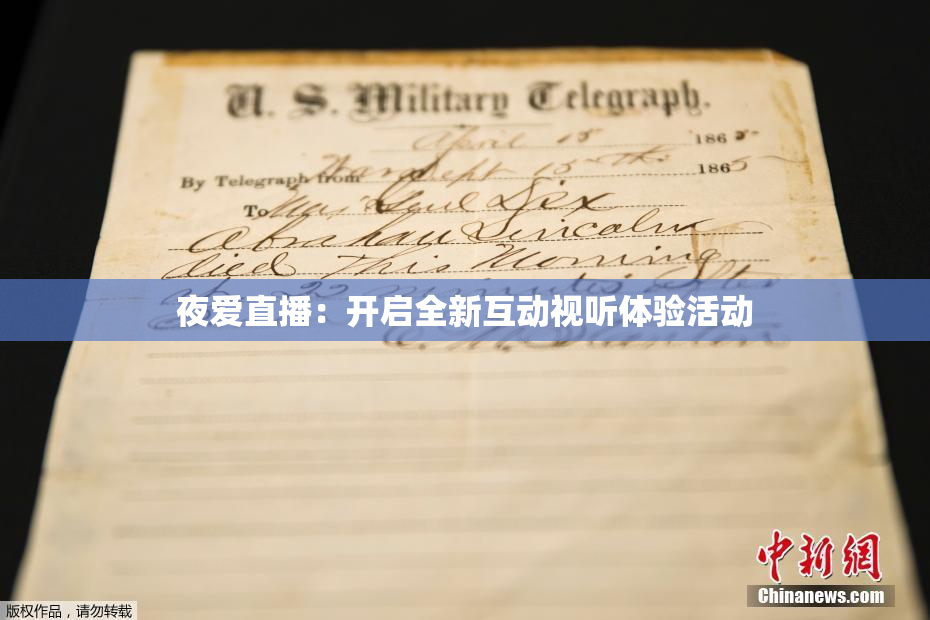 U. S. Military Telegraph.
April 15 1865
By Telegraph from War Dept 15th 1865
To Maj Genl Dix
Abraham Lincoln
died This Morning
at 22 minutes after
夜爱直播：开启全新互动视听体验活动
E. M. Stanton
中新网
Chinanews.com
版权作品，请勿转载